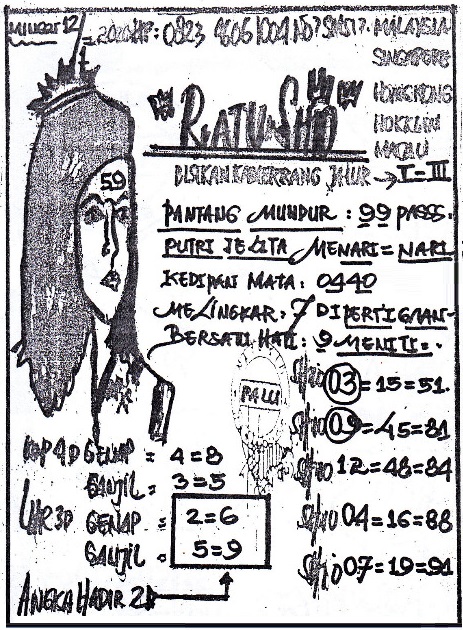 MINGGU 12
HP: 0823
MALAYSIA
SINGAPORE
HONGKONG
MACAU
"RATU SHIO"
JALUR → I-III
59
PANTANG MUNDUR : 99 PASSS.
PUTRI JELITA MENARI = NARI
KEDIPAN MATA : 0440
MELINGKAR : 7 DIPERTIGAAN-
BERSATU HATI : 9 MENITI =.
PALU
SHIO 03 = 15 = 51.
SHIO 09 = 45 = 81
SHIO 12 = 48 = 84
SHIO 04 = 16 = 88
SHIO 07 = 19 = 91
KOP 4D GENAP = 4 = 8
GANJIL = 3 = 5
3D GENAP = 2 = 6
GANJIL = 5 = 9
ANGKA HADIR 2D